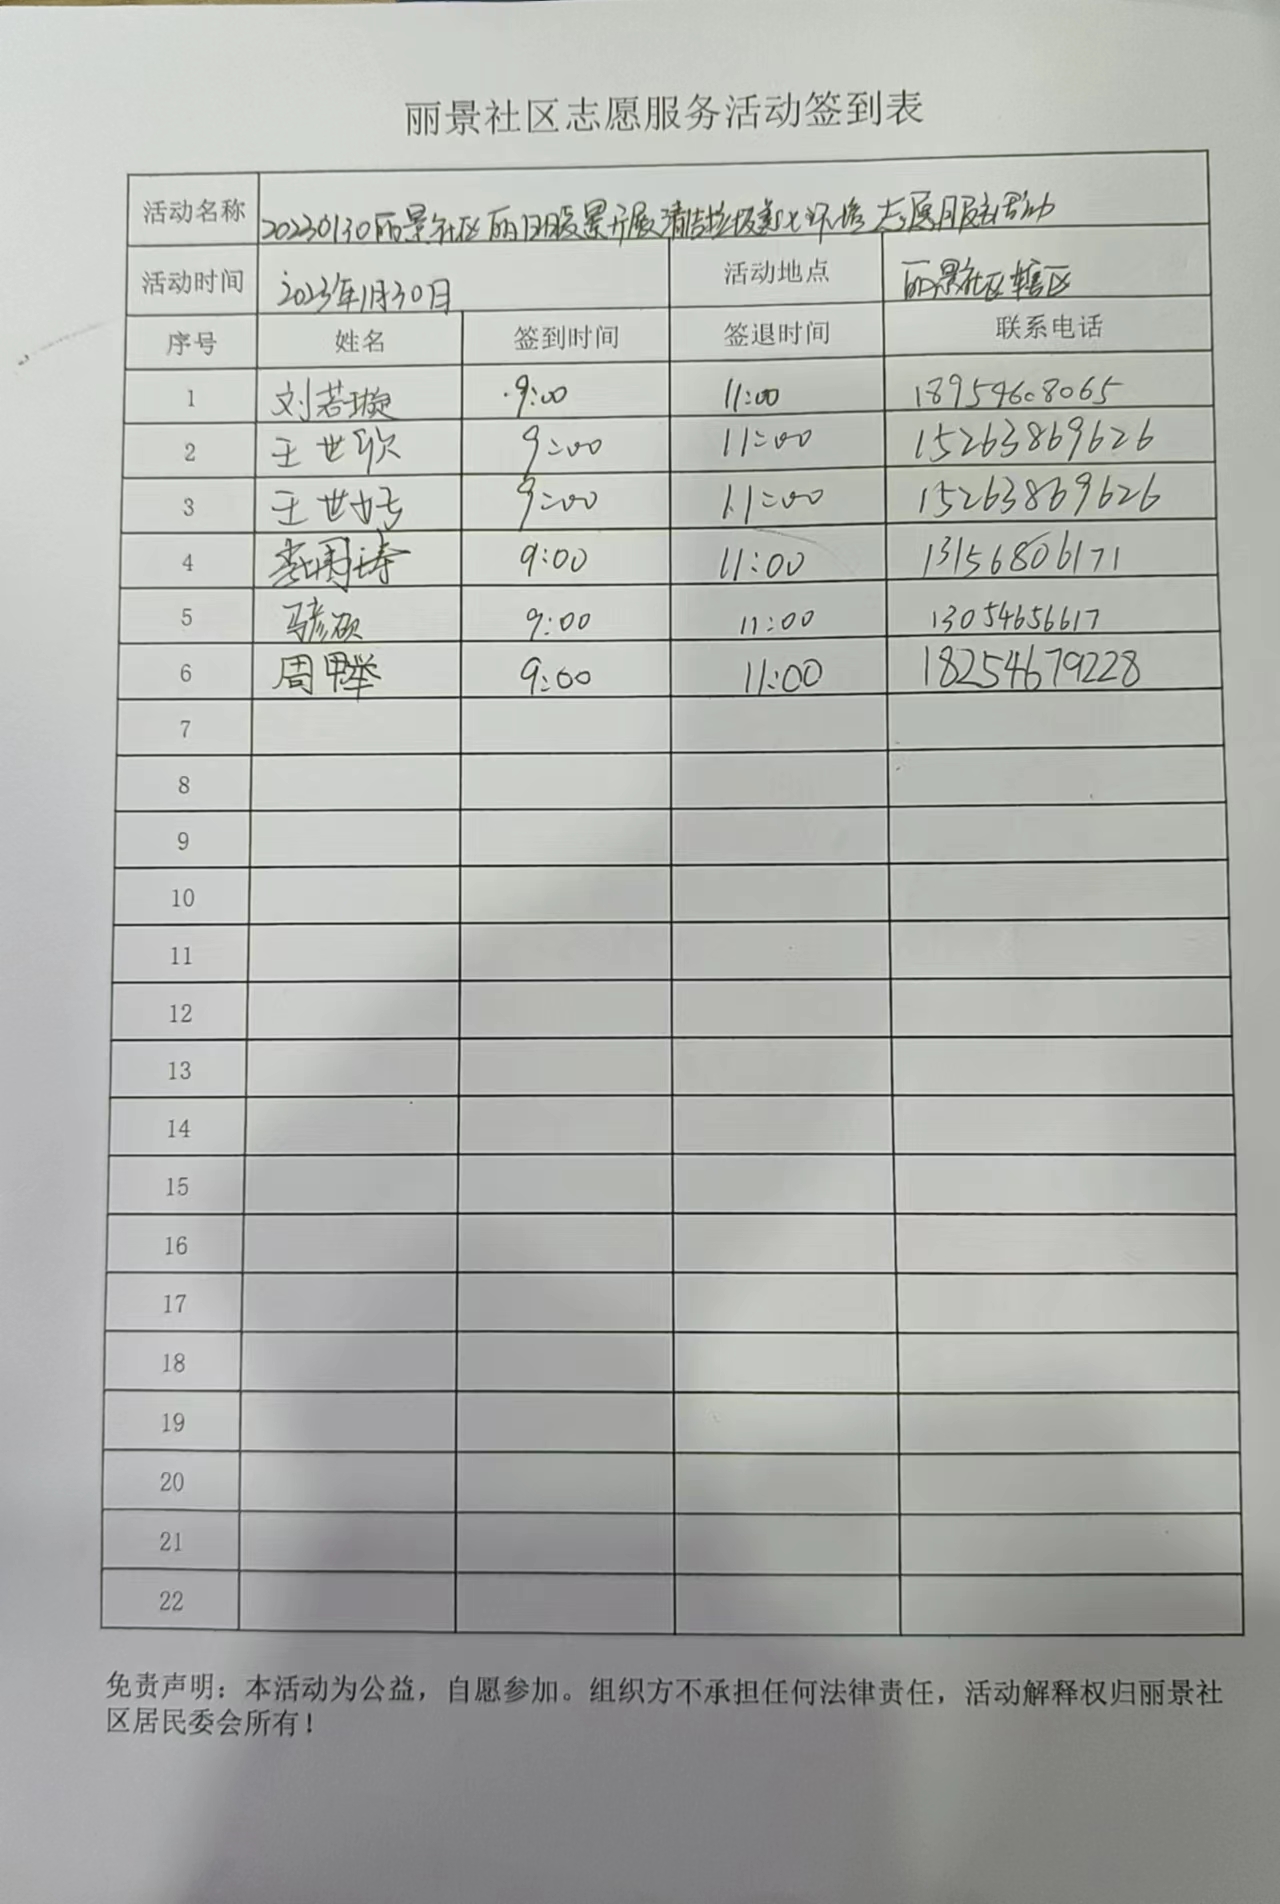 丽景社区志愿服务活动签到表
活动名称 20230130丽景社区丽日暖景开展清洁垃圾美化环境志愿服务活动
活动时间 2023年1月30日 活动地点 丽景社区辖区
序号 姓名 签到时间 签退时间 联系电话
1 刘若璇 9:00 11:00 18954608065
2 王世欣 9:00 11:00 15263869626
3 王世好 9:00 11:00 15263869626
4 9:00 11:00 13156806171
5 马彦硕 9:00 11:00 13054656617
6 周 9:00 11:00 18254679228
7
8
9
10
11
12
13
14
15
16
17
18
19
20
21
22
免责声明：本活动为公益，自愿参加。组织方不承担任何法律责任，活动解释权归丽景社
区居民委会所有！